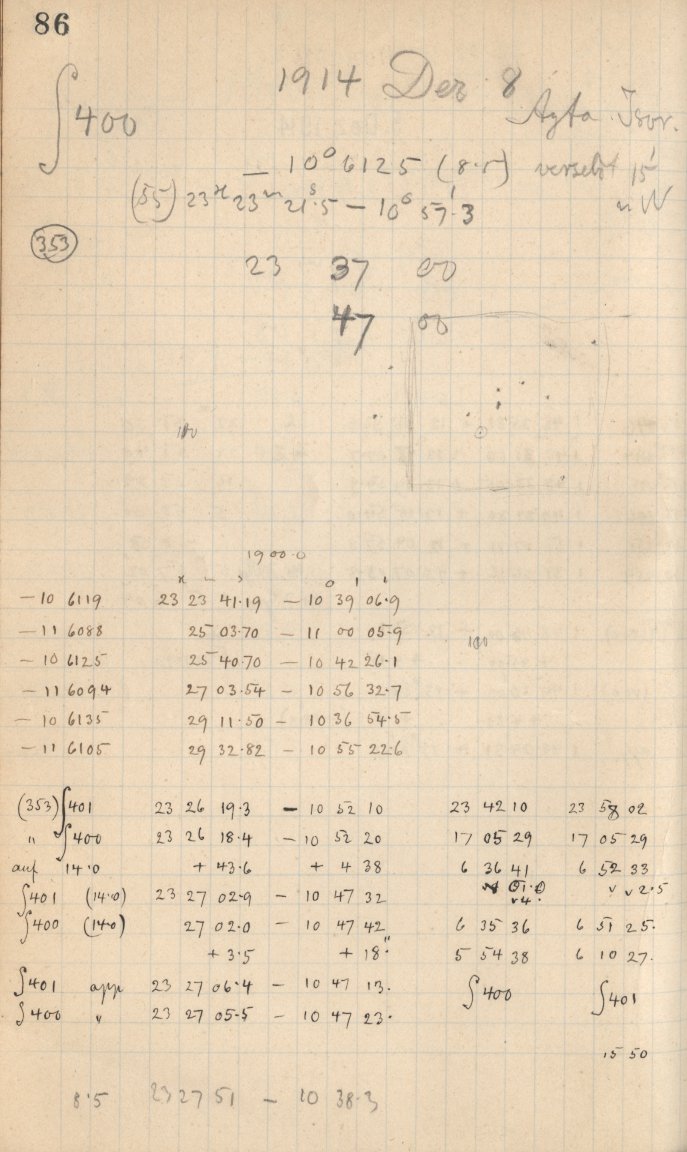 86
1914 Dez 8
∫400
Agfa Isor.
— 10° 6125 (8.5) versetzt 15'
(55) 23ʰ 23ᵐ 21ˢ.5 — 10° 57'.3 n W
(353)
23 37 00
47 00
100
1900.0
h m s ° ' "
— 10 6119 23 23 41.19 — 10 39 06.9
— 11 6088 25 03.70 — 11 00 05.9
100
— 10 6125 25 40.70 — 10 42 26.1
— 11 6094 27 03.54 — 10 56 32.7
— 10 6135 29 11.50 — 10 36 54.5
— 11 6105 29 32.82 — 10 55 22.6
(353) ∫401 23 26 19.3 — 10 52 10 23 42 10 23 58 02
" ∫400 23 26 18.4 — 10 52 20 17 05 29 17 05 29
auf 14.0 + 43.6 + 4 38 6 36 41 6 52 33
∫401 (14.0) 23 27 02.9 — 10 47 32
∫400 (14.0) 27 02.0 — 10 47 42 6 35 36 6 51 25.
+ 3.5 + 18." 5 54 38 6 10 27.
∫401 app 23 27 06.4 — 10 47 13. ∫400 ∫401
∫400 " 23 27 05.5 — 10 47 23.
15 50
8.5 23 27 51 — 10 38.3